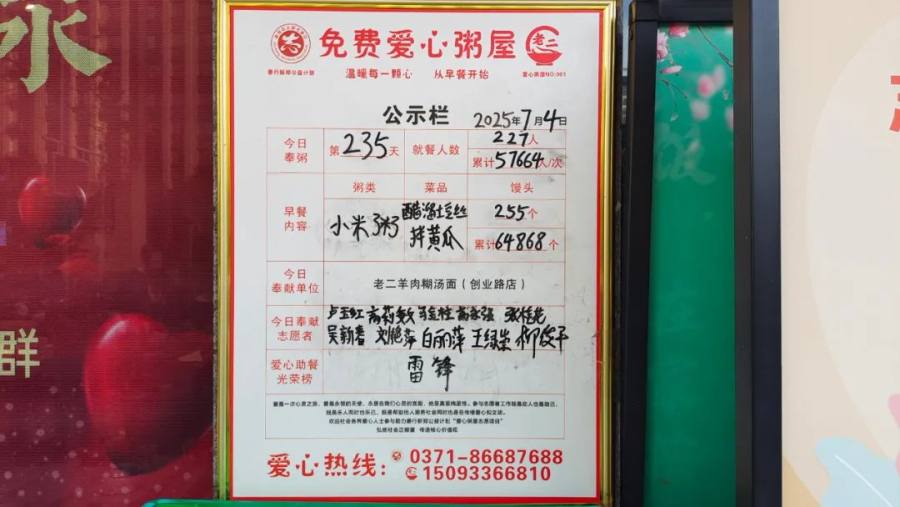 永
群
免费爱心粥屋
老二
善行新郑公益计划
温暖每一颗心 从早餐开始
爱心粥屋NO:001
公示栏
2025年7月4日
今日奉粥
第235天
就餐人数
227人
累计57664人/次
早餐内容
粥类
菜品
馒头
小米粥
醋溜土豆丝
拌黄瓜
255个
累计64868个
今日奉献单位
老二羊肉糊汤面（创业路店）
今日奉献志愿者
卢玉红
吴新春 刘艳萍 白丽萍 王绿生
爱心助餐光荣榜
雷锋
弘扬社会正能量 传递核心价值观
爱心热线：
0371-86687688
15093366810